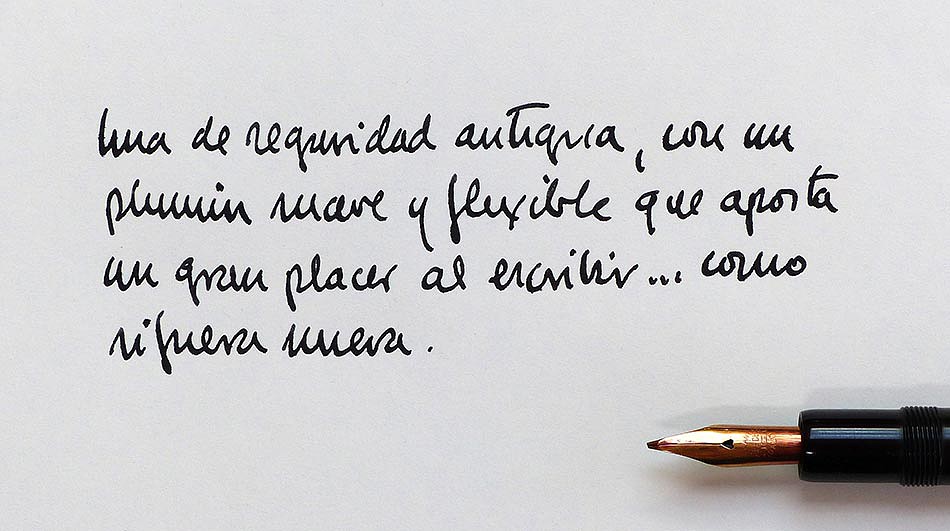 Una de seguridad antigua, con un
plumín suave y flexible que aporta
un gran placer al escribir... como
si fuera nueva.